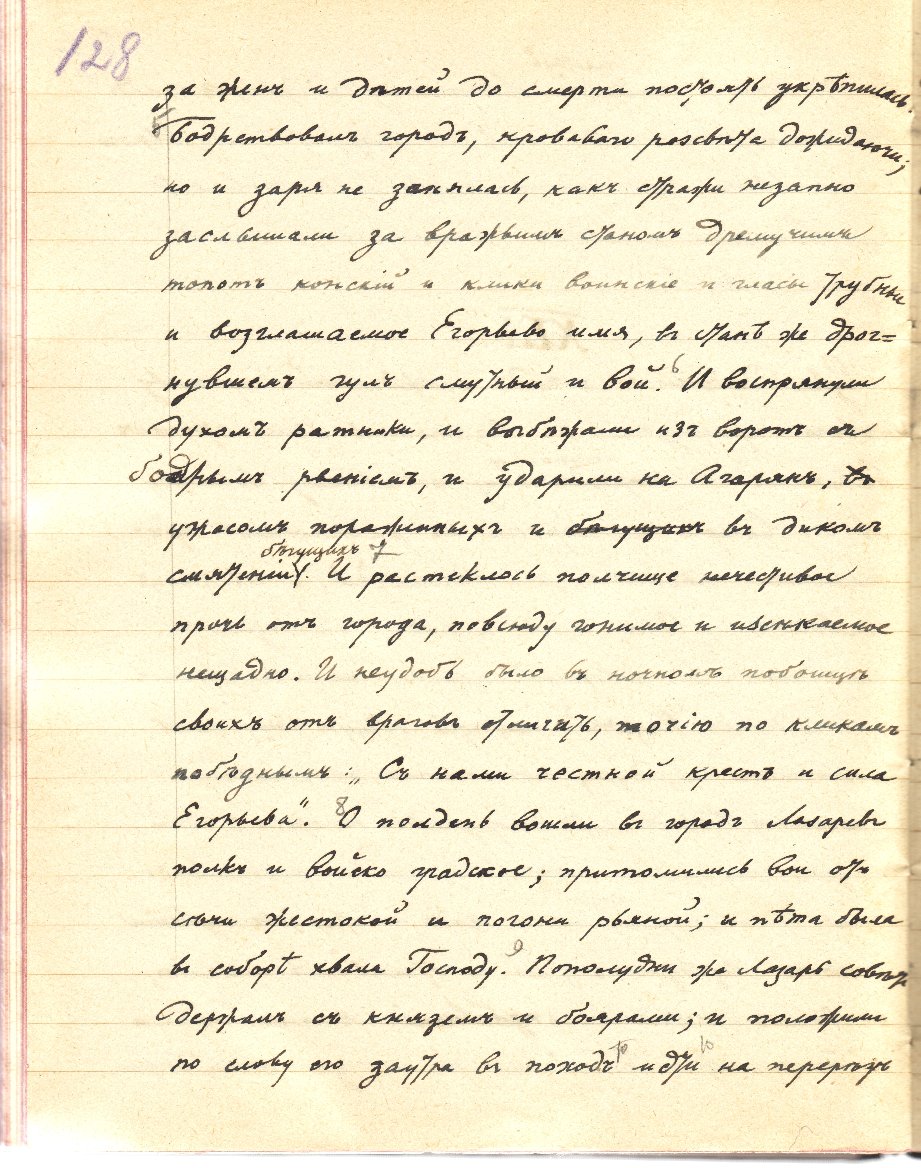 128
за женъ и дѣтей до смерти постоять укрѣпилась.
5 Бодрствовалъ городъ, кроваваго розсвѣта дожидаючи;
но и заря не занялась, какъ стражи незапно
заслышали за вражьимъ станомъ дремучимъ
топотъ конскій и клики воинскіе и гласы трубные
и возглашаемое Егорьево имя, въ станѣ же дрог=
нувшемъ гулъ смутный и вой. 6 И воспрянули
духомъ ратники, и выбѣжали изъ воротъ съ
бодрымъ рвеніемъ, и ударили на Агарянъ, въ
ужасомъ пораженныхъ и бѣгущихъ въ дикомъ
бѣгущихъ 7
смятеніи. И растеклось полчище нечестивое
прочь отъ города, повсюду гонимое и изсѣкаемое
нещадно. И неудобь было въ ночномъ побоищѣ
своихъ отъ враговъ отличить, точію по кликамъ
побѣднымъ: „Съ нами честной крестъ и сила
Егорьева". 8 О полдень вошли въ городъ Лазаревъ
полкъ и войско градское; притомились вои отъ
сѣчи жестокой и погони рьяной; и пѣта была
въ соборѣ хвала Господу. 9 Пополудни же Лазарь совѣтъ
держалъ съ княземъ и боярами; и положили
по слову его заутра въ походъ идти 10 на перерѣзъ